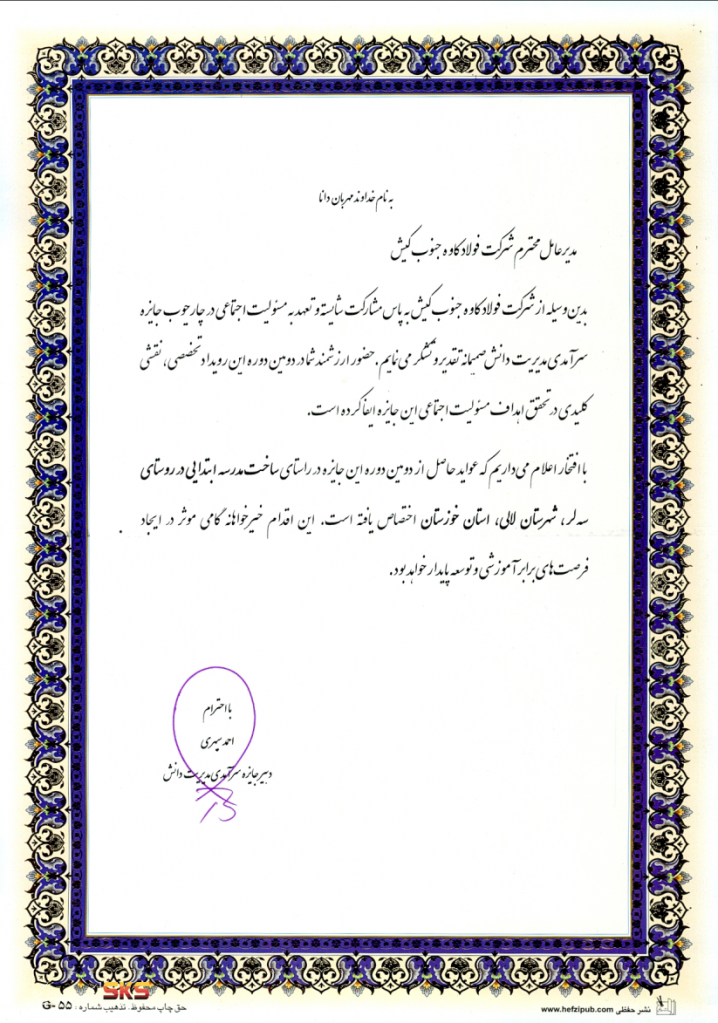 به نام خداوند مهربان دانا
مدیر عامل محترم شرکت فولاد کاوه جنوب کیش
بدین وسیله از شرکت فولاد کاوه جنوب کیش به پاس مشارکت شایسته و تعهد به مسئولیت اجتماعی در چارچوب جایزه
سرآمدی مدیریت دانش صمیمانه تقدیر و تشکر می نمایم. حضور ارزشمند شما در دومین دوره این رویداد تخصصی، نقشی
کلیدی در تحقق اهداف مسئولیت اجتماعی این جایزه ایفا کرده است.
با افتخار اعلام می داریم که عواید حاصل از دومین دوره این جایزه در راستای ساخت مدرسه ابتدایی در روستای
سه لر، شهرستان لالی، استان خوزستان اختصاص یافته است. این اقدام خیرخواهانه گامی موثر در ایجاد
فرصت های برابر آموزشی و توسعه پایدار خواهد بود.
با احترام
احمد سپهری
دبیر جایزه سرآمدی مدیریت دانش
SKS
نشر حفظی www.hefzipub.com
حق چاپ محفوظ. تذهیب شماره : G-۵۵